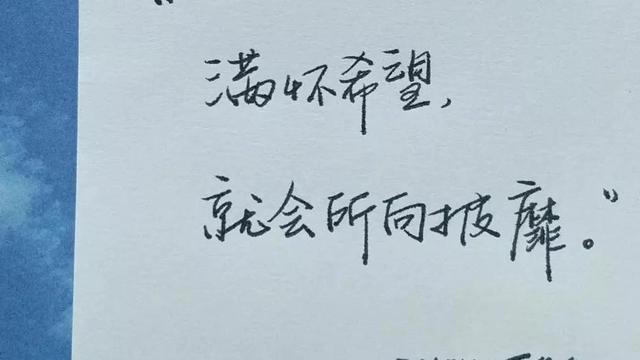 “满怀希望，
就会所向披靡。”